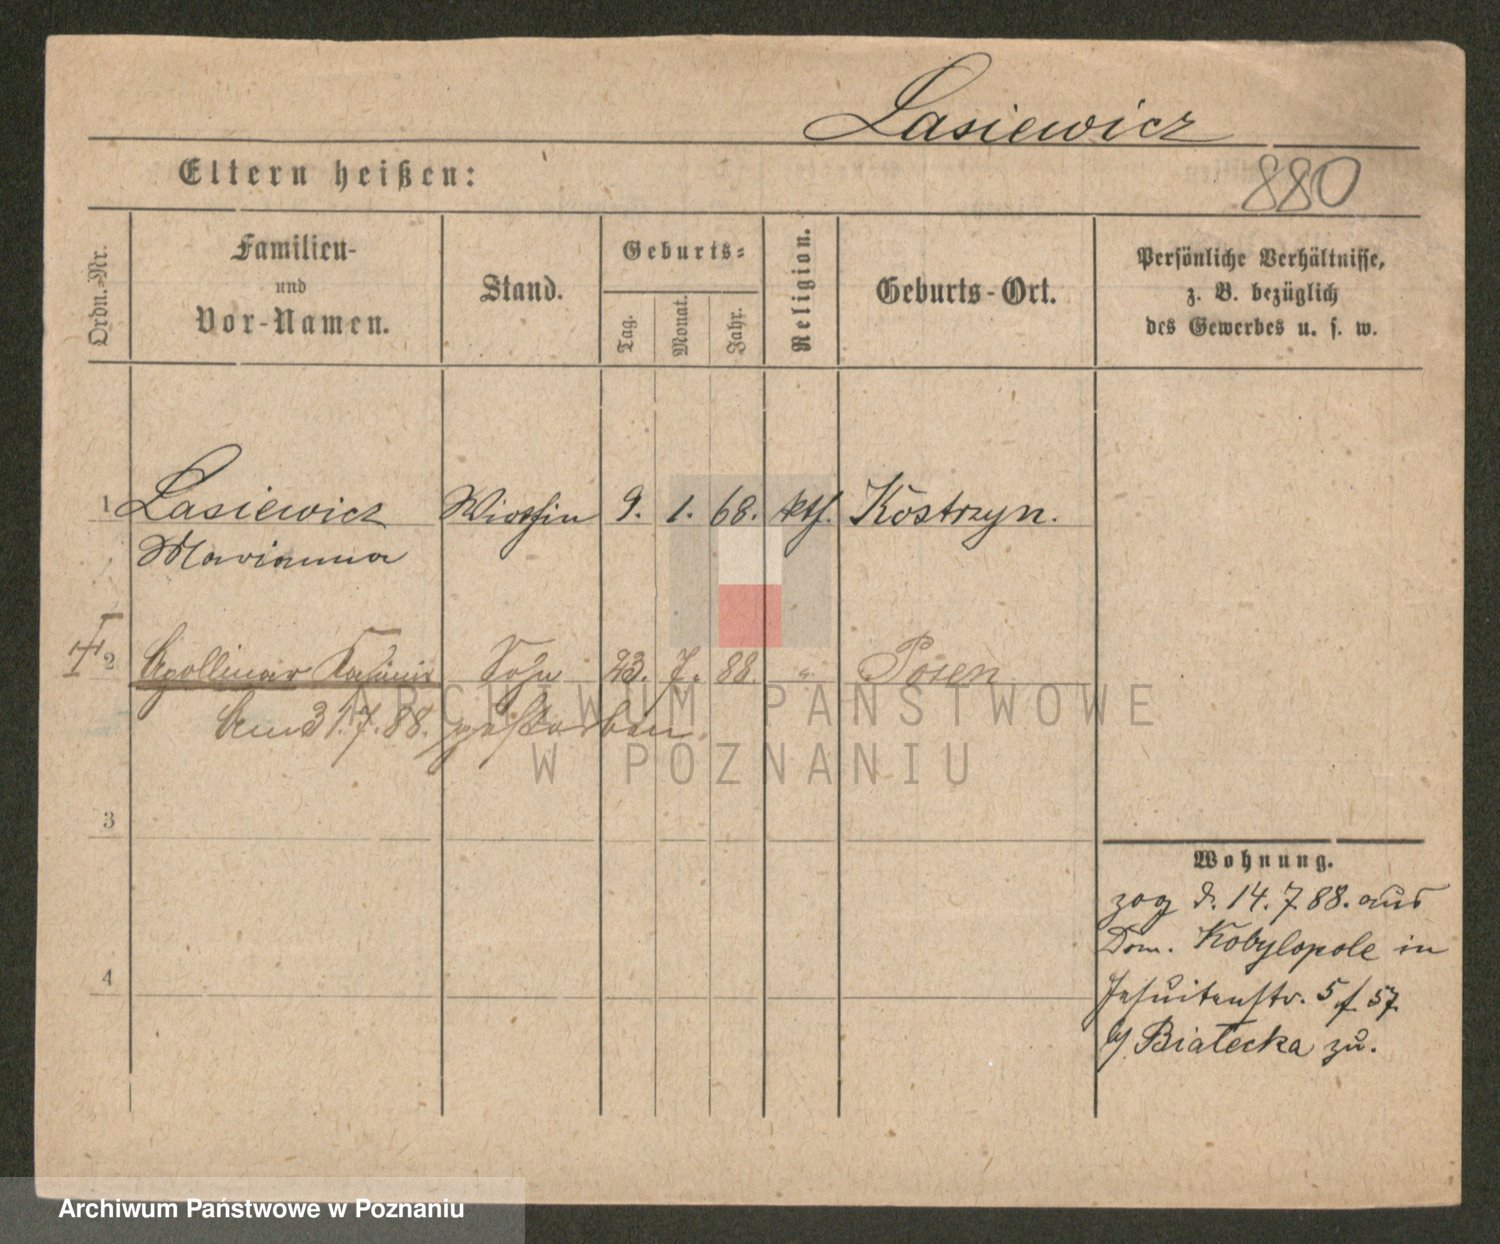 Lasiewicz
Eltern heißen:
880
Ordn.-Nr.
Familien-
und
Vor-Namen.
Stand.
Geburts-
Tag.
Monat.
Jahr.
Religion.
Geburts-Ort.
Persönliche Verhältnisse,
z. B. bezüglich
des Gewerbes u. s. w.
1 Lasiewicz Wirthin 9. 1. 68. kth. Kostrzyn.
Marianna
2 Apollinar Kasimir Sohn 23. 7. 88. " Posen
Am 31.7.88. gestorben
ARCHIWUM PAŃSTWOWE
W POZNANIU
3
Wohnung.
zog d. 14.7.88. aus
Dom. Kobylopole in
4
Jesuitenstr. 5 f. 57.
b/ Białecka zu.
Archiwum Państwowe w Poznaniu